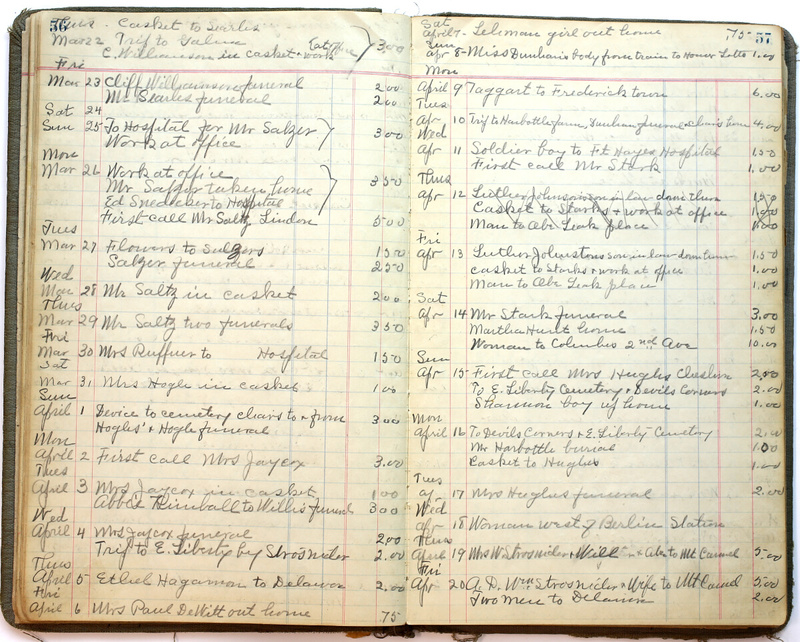 56
Thurs. Casket to Searles
Mar 22 Trip to Galena
C. Williamson in casket + work 3.00
Fri
Mar 23 Cliff Williamson funeral 2 00
Mr Searles funeral 2 00
Sat 24
Sun 25 To Hospital for Mr Salzer
Work at office 3 00
Mon
Mar 26 Work at office
Mr Salzer taken home 3 50
Ed Snedecker to Hospital
First call Mr Saltz, Linden 5 00
Tues
Mar 27 Flowers to Salzers 1 50
Salzer funeral 2 50
Wed
Mar 28 Mr Saltz in casket 2 00
Thurs
Mar 29 Mr Saltz two funerals 3 50
Fri
Mar 30 Mrs Ruffner to Hospital 1 50
Sat
Mar 31 Mrs Hogle in casket 1 00
Sun
April 1 Device to cemetery chairs to + from 3 00
Hogles' + Hogle funeral
Mon
April 2 First call Mrs Jaycox 3.00
Tues
April 3 Mrs Jaycox in casket 1 00
Kimball to Willis funeral 3 00
Wed
April 4 Mrs Jaycox funeral 2 00
Trip to E. Liberty by Strosnider 2.00
Thurs
April 5 Ethel Hagaman to Delaware 2.00
Fri
April 6 Mrs Paul DeWitt out home 75
57
Sat
April 7. Lehman girl out home 75
Sun
Apr 8 Miss Dunham's body from train to Homer Lotts 1.00
Mon
April 9 Taggart to Fredericktown 6.00
Tues
Apr 10 Trip to Harbottle farm, Dunham funeral + chairs home 4.00
Wed
Apr 11 Soldier boy to Ft Hayes Hospital 1.50
First call Mr Stark 1.00
Thurs
Apr 12 Luther Johnson son in law down town 1.50
Casket to Starks + work at office 1.00
Man to Abe Leak place 1.00
Fri
Apr 13 Luther Johnstons son in law down town 1.50
casket to Starks + work at office 1.00
Man to Abe Leak place 1.00
Sat
Apr 14 Mr Stark funeral 3.00
Martha Hunt home 1.50
Woman to Columbus 2nd Ave 10.00
Sun
Apr 15 First call Mrs Hughes Cheslen 2.50
To E. Liberty Cemetery + Devils Corners 2.00
Shannon boy up home 1.00
Mon
April 16 To Devils Corners + E. Liberty Cemetery 2.00
Mr Harbottle burial 1.00
Casket to Hughes 1.00
Tues
Ap 17 Mrs Hughes funeral 2.00
Wed
Apr 18 Woman west of Berlin Station
Thurs
April 19 Mrs W Strosnider + Will to Mt Carmel 5.00
Fri
Apr 20 A. D. Wm Strosnider + Wife to Mt Carmel 5.00
Two men to Delaware 2.00